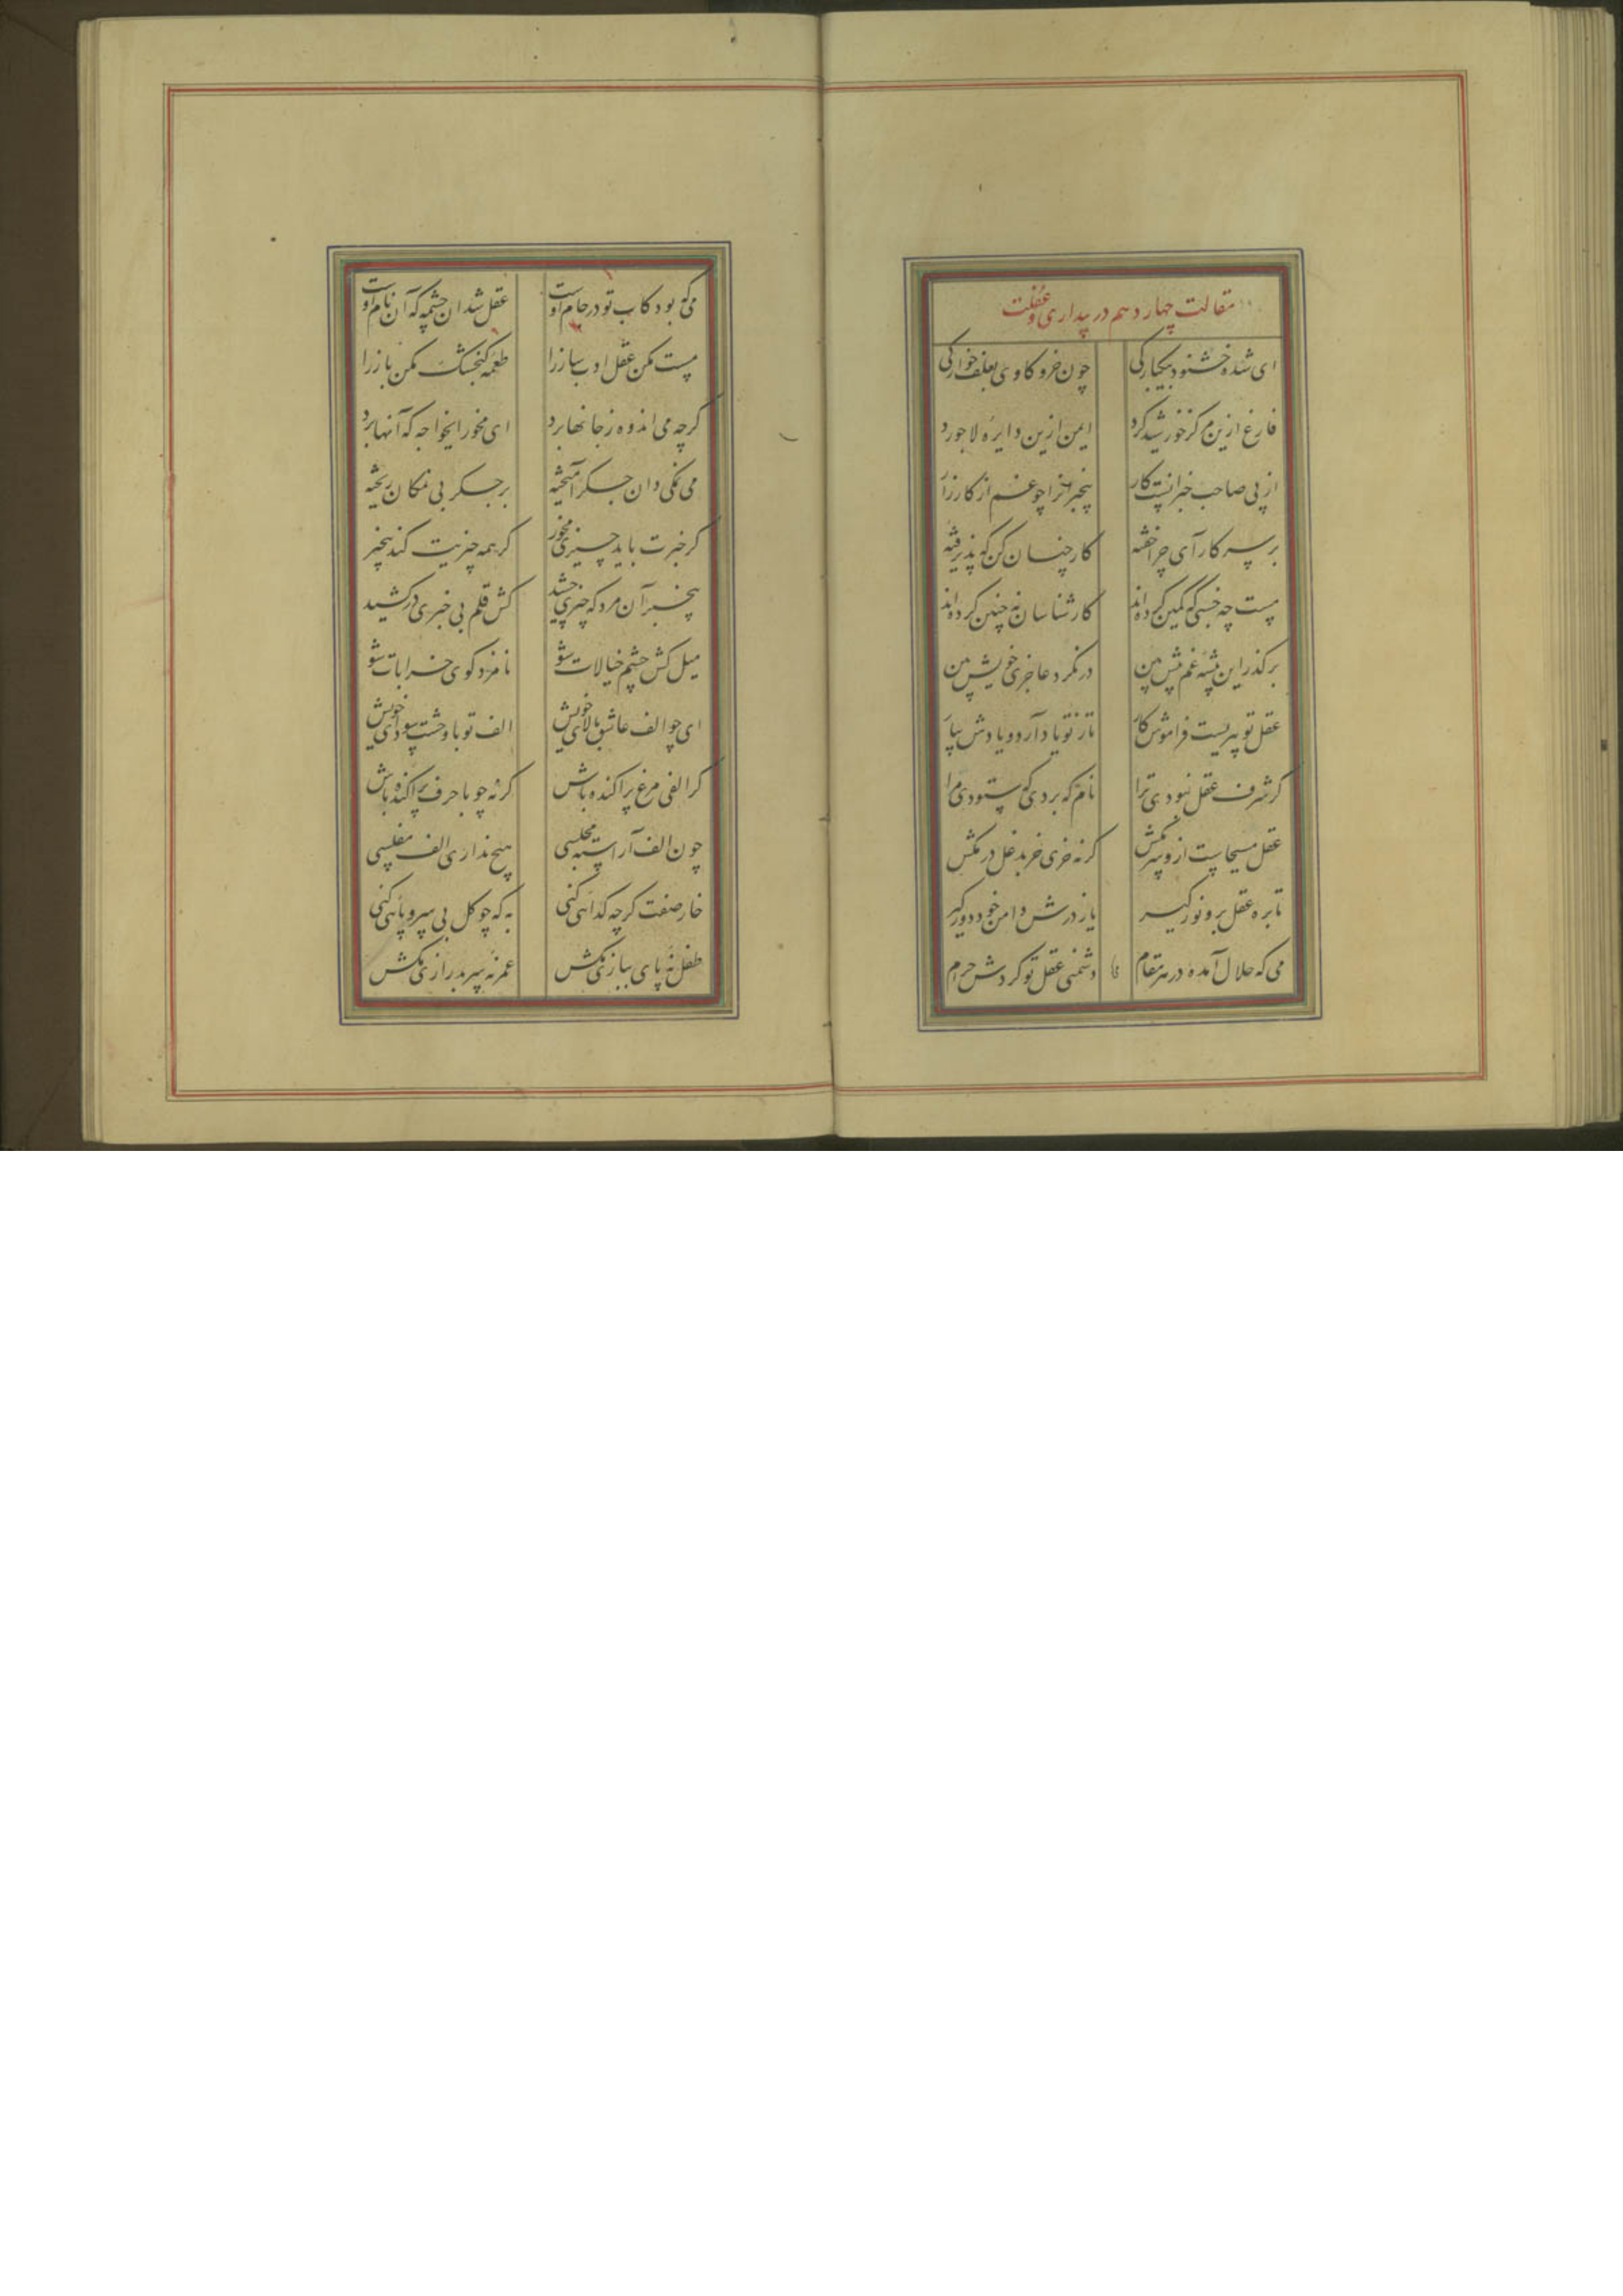 مقالت چهاردهم در بیداری و غفلت
ای شده خشنود بیکبارکی چون خر و کاوی بعلف خوارکی
فارغ ازین مرکز خورشید کرد ایمن ازین دایره لاجورد
از پی صاحب خبرانست کار بیخبرانرا چه غم از کارزار
بر سر کار آی چرا خفته کار چنان کن که پذیرفته
مست چه خسبی که کمین کرده‌اند کارشناسان نه چنین کرده‌اند
برکذر این پیشه غم پیش بین درنکر و عاجزی خویش بین
عقل تو پیریست فراموش کار تا ز تو یاد آرد و یادش بیار
کر شرف عقل نبودی ترا نام که بردی که ستودی مرا
عقل مسیحاست ازو سر مکش کر نه خری خر بدغل در مکش
تا بره عقل برو نور کیر یا ز درش دامن خود دور کیر
می که حلال آمده در هر مقام دشمنی عقل تو کردش حرام
می که بود کاب تو در جام اوست عقل شد ان چشمه که آن نام اوست
مست مکن عقل ادب ساز را طعمه کنجشک مکن باز را
کرچه می اندوه ز جانها برد ای مخور ایخواجه که آنها برد
می نمکی دان جکر آمیخته بر جکر بی نمکان ریخته
کر خبرت باید چیزی مخور کز همه چیزیت کند بیخبر
بیخبر آن مرد که چیزی چشید کش قلم بی خبری درکشید
میل کش چشم خیالات شو نامزد کوی خرابات شو
ای چو الف عاشق بالای خویش الف تو با وحشت سودای خویش
کر الفی مرغ پراکنده باش کر نه چو با حرف پراکنده باش
چون الف آراسته مجلسی هیچ نداری الف مفلسی
خار صفت کرچه کدائی کنی به که چو کل بی سر و پائی کنی
طفل نه پای ببازی مکش عمر نه سر بدرازی مکش